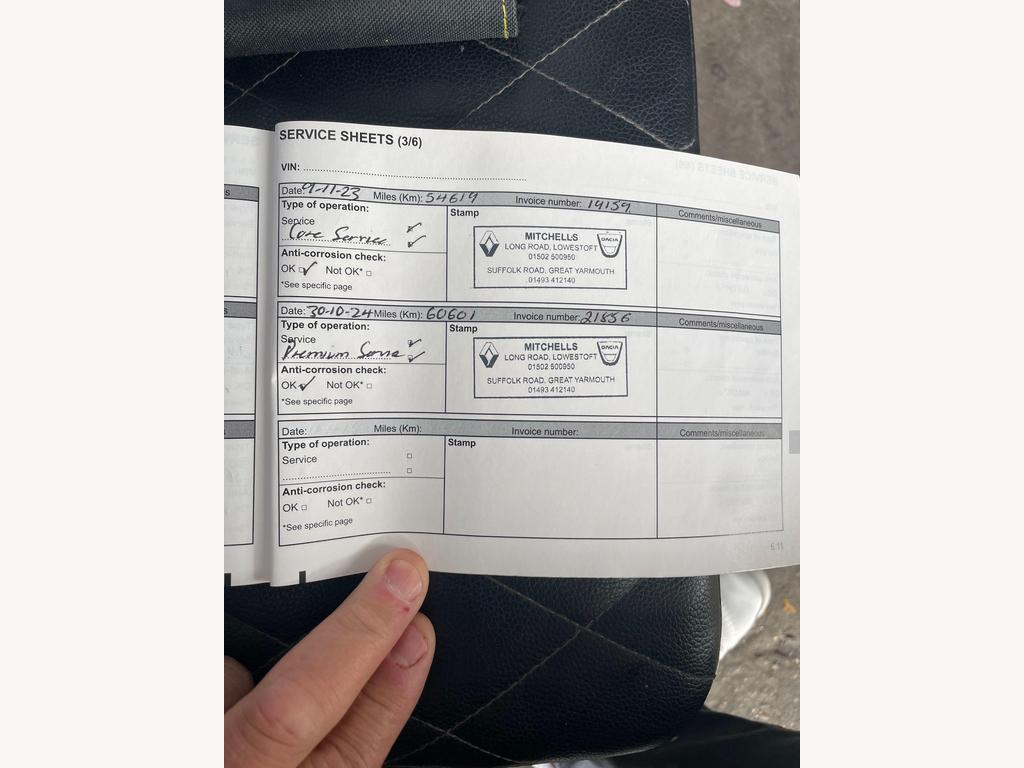 SERVICE SHEETS (3/6)
VIN:
Date: 9-11-23 Miles (Km): 54619 Invoice number: 19159 Comments/miscellaneous
Type of operation:
Service
Core Service
Anti-corrosion check:
OK Not OK*
*See specific page
Stamp
MITCHELLS
LONG ROAD, LOWESTOFT
01502 500950
SUFFOLK ROAD, GREAT YARMOUTH
01493 412140
DACIA
Date: 30-10-24 Miles (Km): 60601 Invoice number: 21856 Comments/miscellaneous
Type of operation:
Service
Premium Service
Anti-corrosion check:
OK Not OK*
*See specific page
Stamp
MITCHELLS
LONG ROAD, LOWESTOFT
01502 500950
SUFFOLK ROAD, GREAT YARMOUTH
01493 412140
DACIA
Date: Miles (Km): Invoice number: Comments/miscellaneous
Type of operation:
Service
Anti-corrosion check:
OK Not OK*
*See specific page
Stamp
6.11